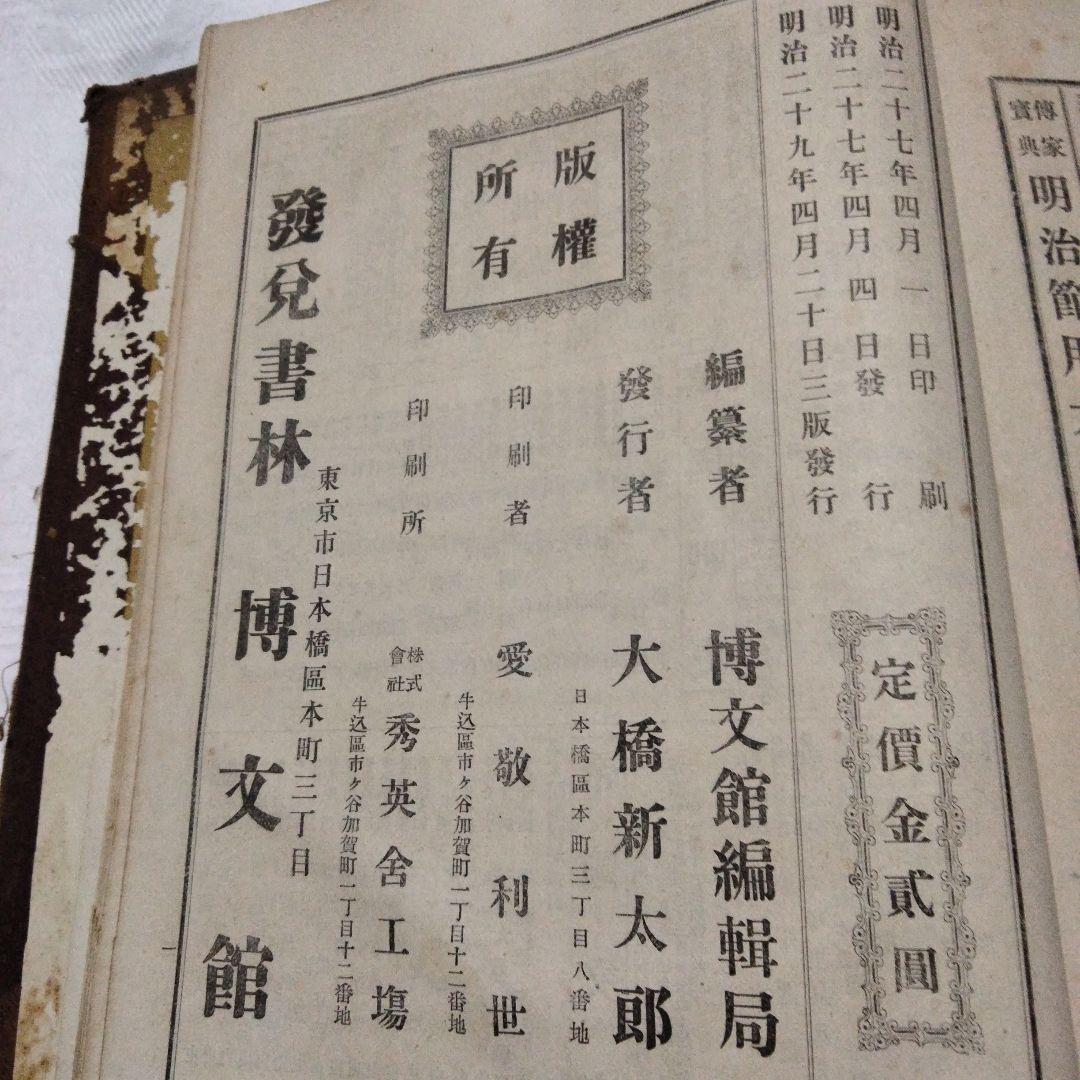 傳家
寶典
明治節用
明治二十七年四月一日印刷
明治二十七年四月四日發行
明治二十九年四月二十日三版發行
定價金貳圓
編纂者 博文館編輯局
發行者 大橋新太郎
日本橋區本町三丁目八番地
印刷者 愛敬利世
牛込區市ヶ谷加賀町一丁目十二番地
印刷所 株式會社 秀英舍工塲
牛込區市ヶ谷加賀町一丁目十二番地
版權
所有
東京市日本橋區本町三丁目
發兌書林 博文館
一